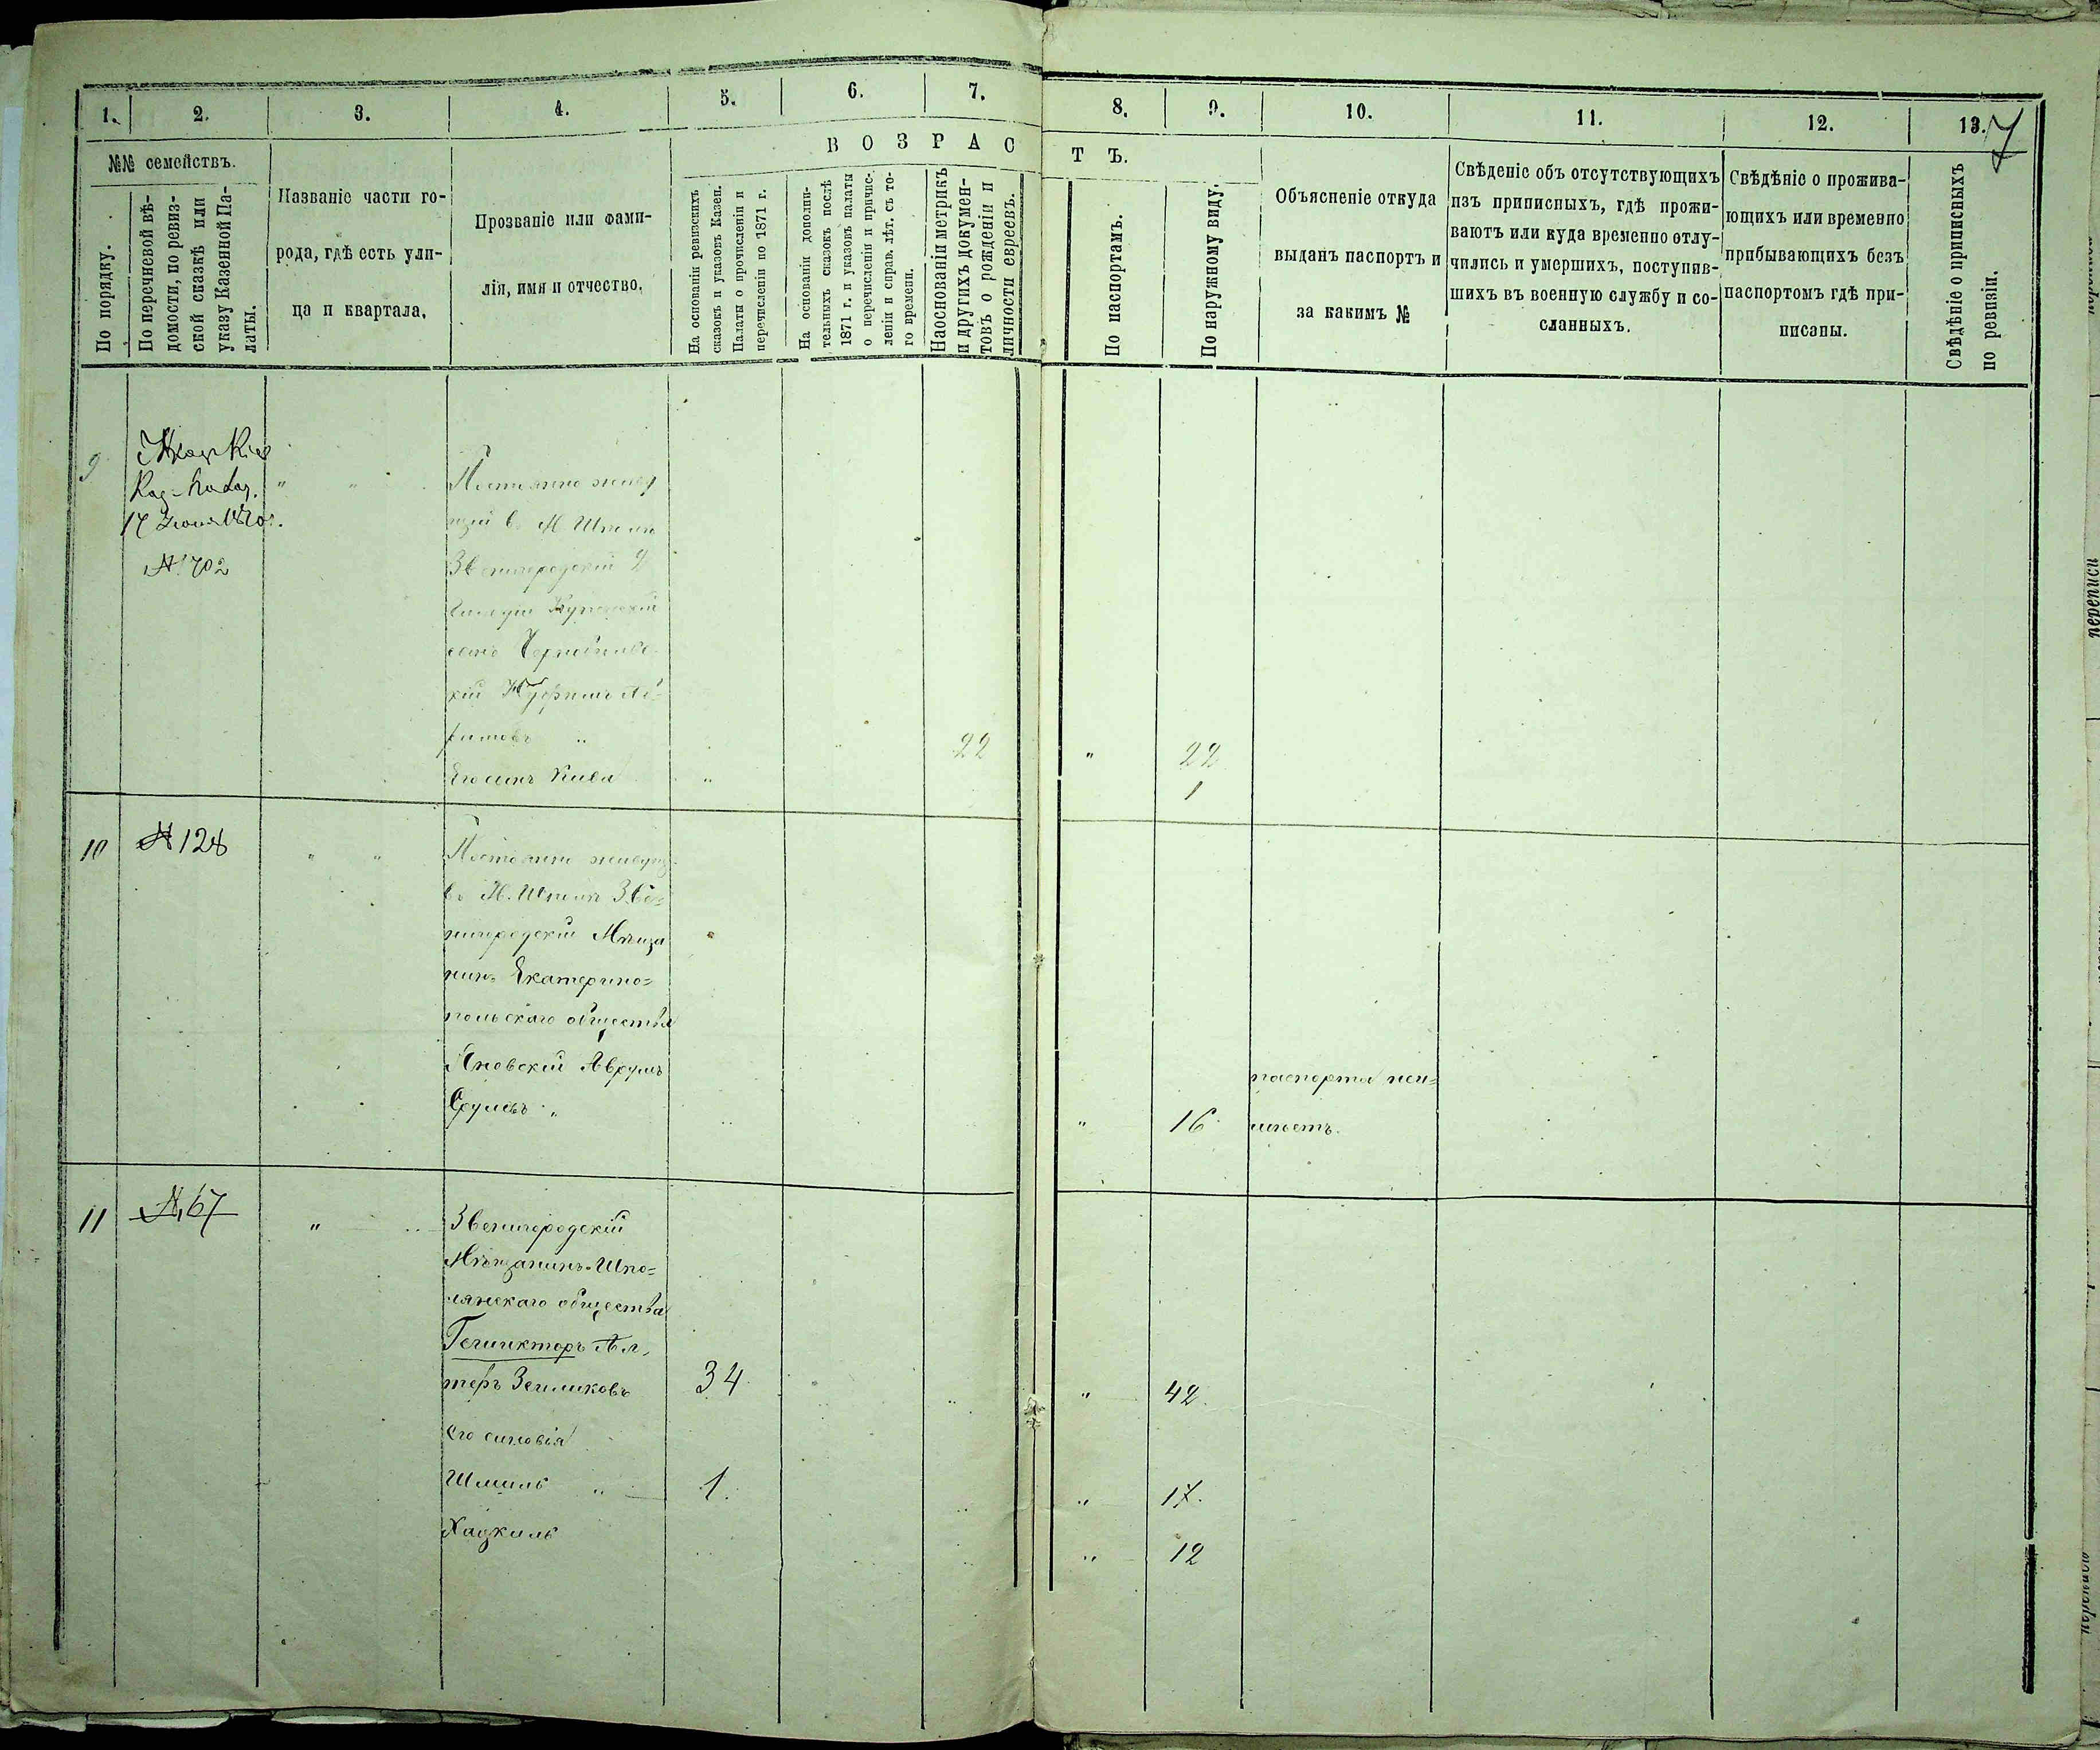 1. 2. 3. 4. 5. 6. 7. 8. 9. 10. 11. 12. 13. 7
ВОЗРАСТЪ.
№№ семействъ.
По порядку.
По перечневой вѣ-
домости, по ревиз-
ской сказкѣ или
указу Казенной Па-
латы.
Названіе части го-
рода, гдѣ есть ули-
ца и квартала.
Прозваніе или фами-
лія, имя и отчество.
На основаніи ревизскихъ
сказокъ и указовъ Казен.
Палаты о причисленіи и
перечисленіи по 1871 г.
На основаніи дополни-
тельныхъ сказокъ послѣ
1871 г. и указовъ палаты
о перечисленіи и причис-
леніи и справ. лѣт. съ то-
го времени.
На основаніи метрикъ
и другихъ докумен-
товъ о рожденіи и
личности евреевъ.
По паспортамъ.
По наружному виду.
Объясненіе откуда
выданъ паспортъ и
за какимъ №
Свѣденіе объ отсутствующихъ
изъ приписныхъ, гдѣ прожи-
ваютъ или куда временно отлу-
чились и умершихъ, поступив-
шихъ въ военную службу и со-
сланныхъ.
Свѣдѣніе о прожива-
ющихъ или временно
прибывающихъ безъ
паспортомъ гдѣ при-
писаны.
Свѣдѣніе о приписныхъ
по ревизіи.
9
№ 702
Постоянно живу
щій в. М. Шполѣ
Звенигородскій 2
Гильдіи Купеческій
сынъ
22 " 22
Его сынъ Кива " 1
10 № 128 " "
Постоянно живущ.
въ М. Шполѣ Зве=
нигородскій Мѣща
нинъ Екатерино=
польскаго общества
Яновскій Аврумъ
Сруловъ " " 16
паспорта неи=
мѣетъ.
11 № 67 "
Звенигородскій
Мѣщанинъ Шпо=
лянскаго общества
Гечинкторъ Ал,
теръ Зейликовъ 34 " 42.
Его сыновья
Шмиль " 1. " 17.
Хацкиль " 12
переписи